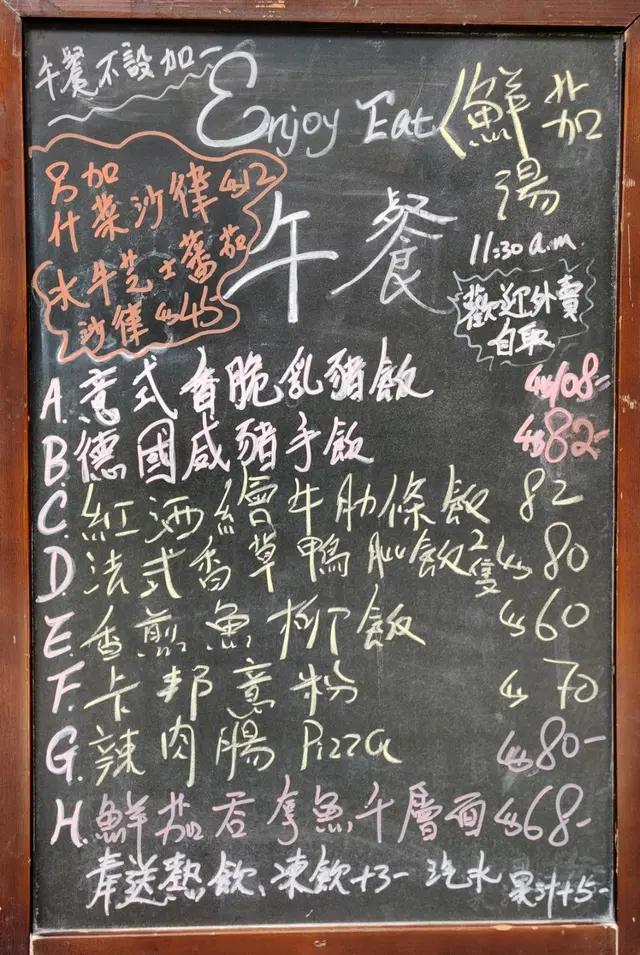 午餐不設加一
Enjoy Eat
鮮茄
湯
另加
什菜沙律 $12
水牛芝士蕃茄
沙律 $45
午餐
11:30 a.m.
歡迎外賣
自取
A. 意式香脆乳豬飯 $108-
B. 德國咸豬手飯 $82-
C. 紅酒繪牛肋條飯 82
D. 法式香草鴨髀飯 2隻 $80
E. 香煎魚柳飯 $60
F. 卡邦意粉 $70
G. 辣肉腸 Pizza $80-
H. 鮮茄吞拿魚千層面 $68-
奉送熱飲、凍飲+3- 汽水 果汁+5-